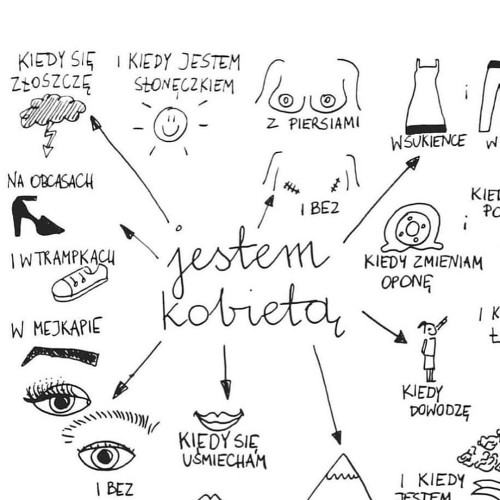 KIEDY SIĘ
ZŁOSZCZĘ
I KIEDY JESTEM
SŁONECZKIEM
Z PIERSIAMI
I BEZ
W SUKIENCE
i
W
NA OBCASACH
I W TRAMPKACH
jestem
kobietą
KIEDY ZMIENIAM
OPONĘ
i
W MEJKAPIE
I BEZ
KIEDY SIĘ
UŚMIECHAM
KIEDY
DOWODZĘ
I KIEDY
JESTEM